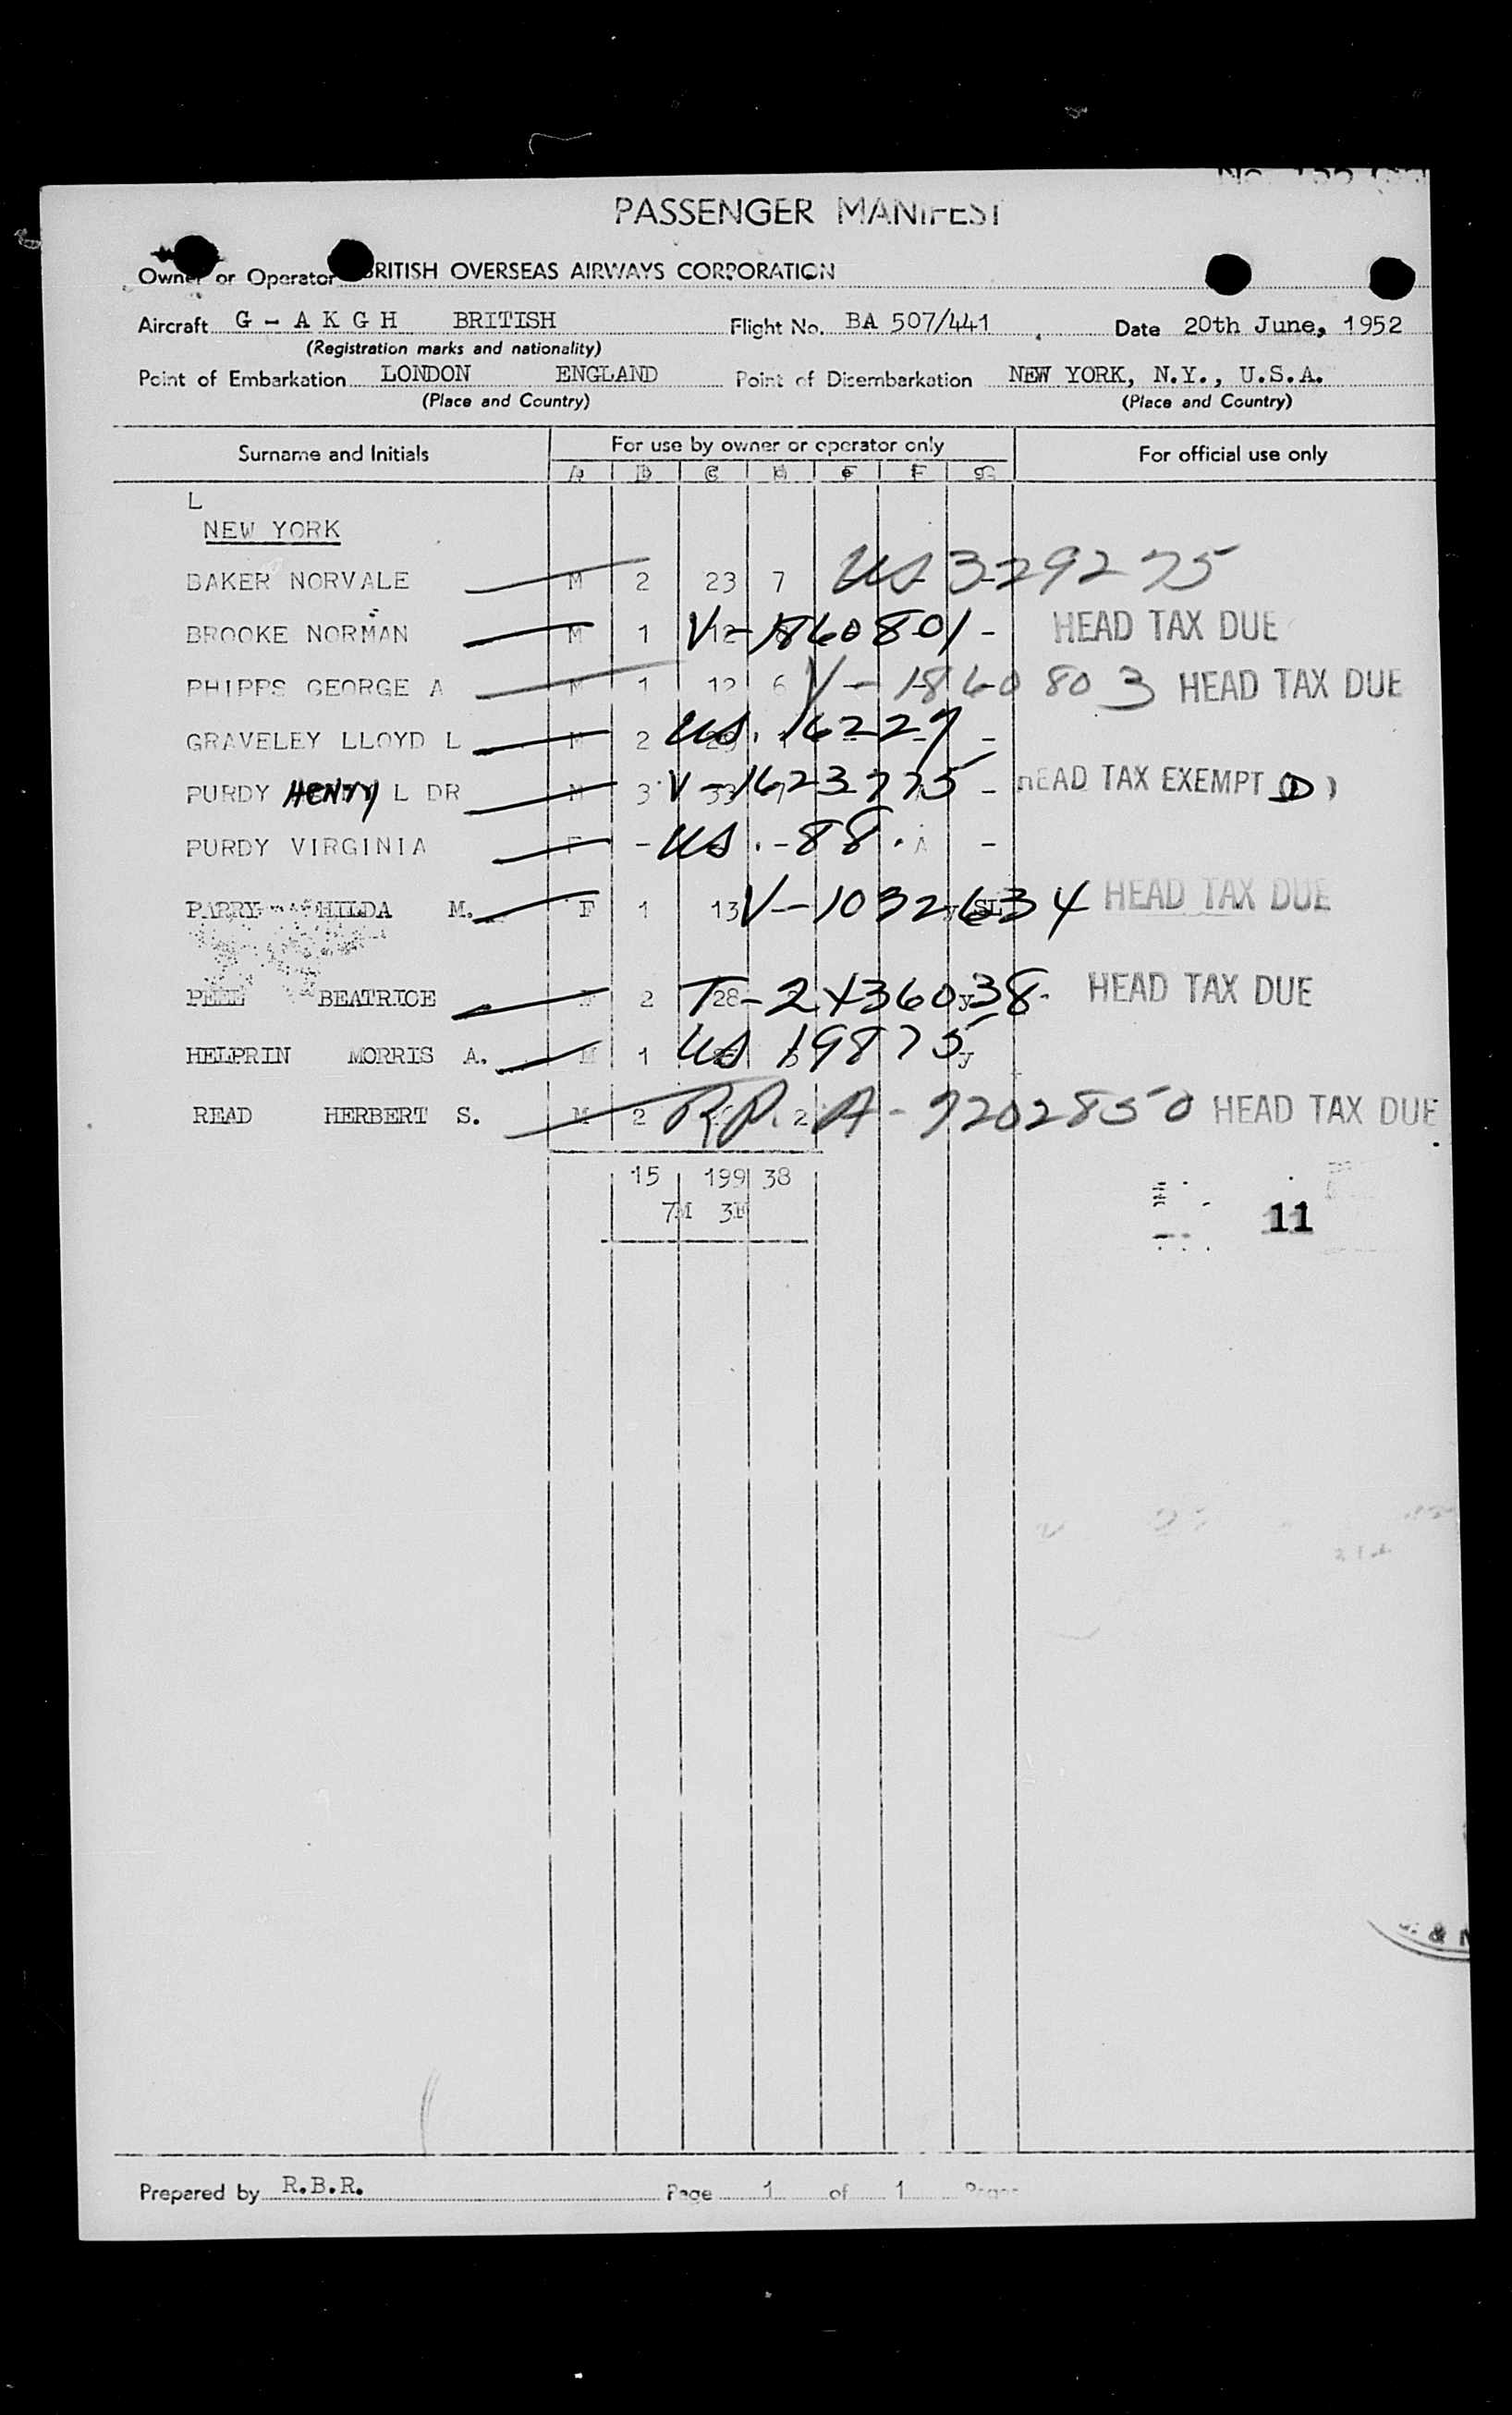 PASSENGER MANIFEST
Owner or Operator BRITISH OVERSEAS AIRWAYS CORPORATION
Aircraft G - A K G H BRITISH Flight No. BA 507/441 Date 20th June, 1952
(Registration marks and nationality)
Point of Embarkation LONDON ENGLAND Point of Disembarkation NEW YORK, N.Y., U.S.A.
(Place and Country) (Place and Country)
Surname and Initials For use by owner or operator only For official use only
A B C D E F G
L
NEW YORK
BAKER NORVALE M 2 23 7 US 329275
BROOKE NORMAN M 1 12 V-1860801 - HEAD TAX DUE
PHIPPS GEORGE A M 1 12 6 V-1860803 HEAD TAX DUE
GRAVELEY LLOYD L M 2 US. 16227 -
PURDY HENRY L DR M 3 33 V-1623775 - HEAD TAX EXEMPT (D)
PURDY VIRGINIA F - US. -88. A -
PARRY HILDA M. F 1 13 V-1032634 SL HEAD TAX DUE
PEEL BEATRICE F 2 28 T-2436038 HEAD TAX DUE
HELPRIN MORRIS A. M 1 US 19875 J
READ HERBERT S. M 2 R.P. 2 A-7202850 HEAD TAX DUE
15 199 38
7M 3F
11
& N
Prepared by R.B.R. Page 1 of 1 Pages